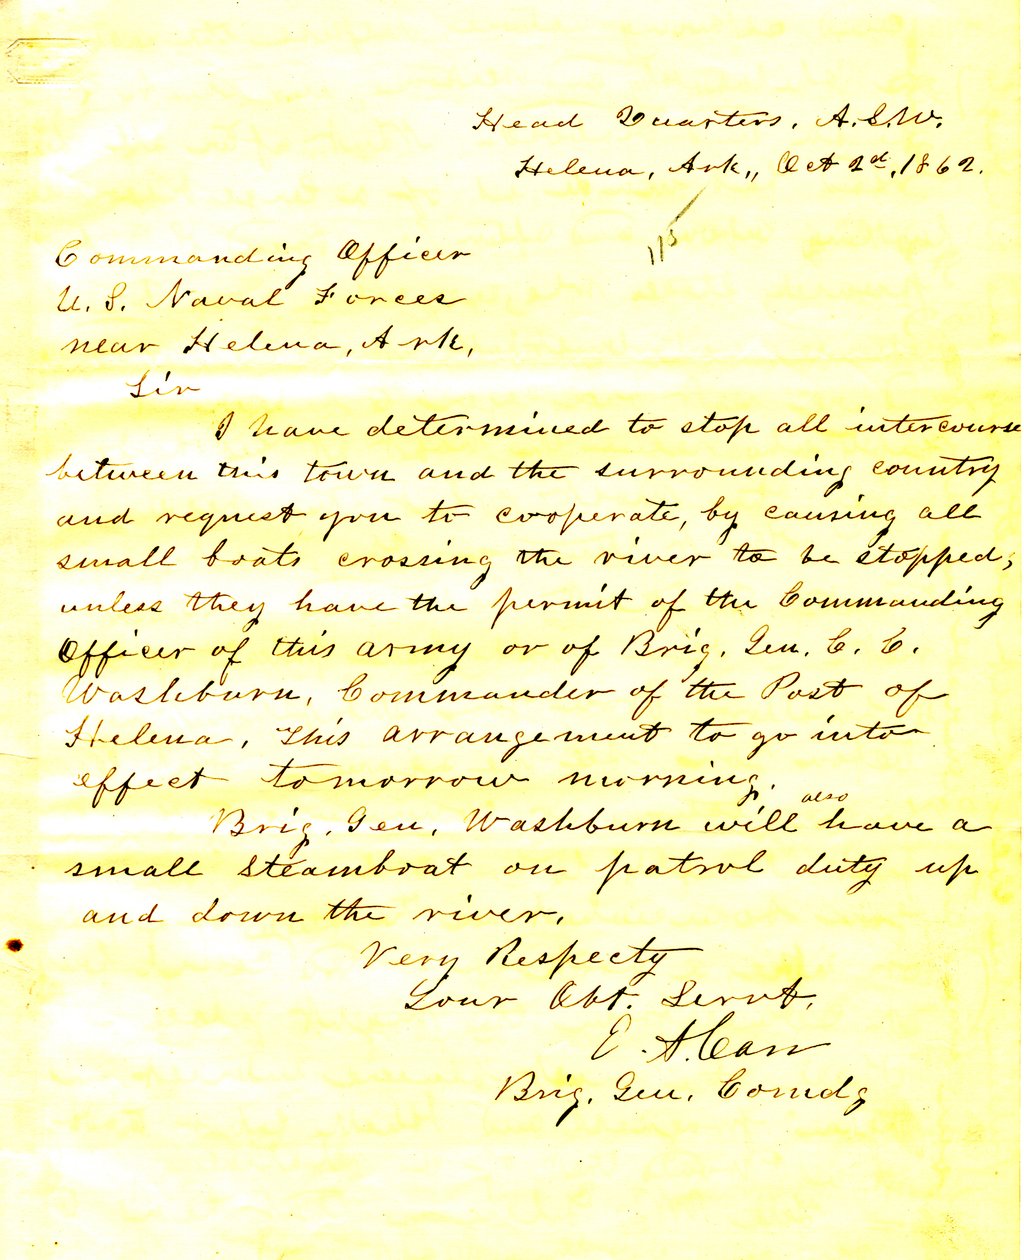 Head Quarters, A.S.W.
Helena, Ark,, Oct 2d, 1862.
115
Commanding Officer
U. S. Naval Forces
near Helena, Ark,
Sir
I have determined to stop all intercourse
between this town and the surrounding country
and request you to cooperate, by causing all
small boats crossing the river to be stopped,
unless they have the permit of the Commanding
Officer of this army or of Brig. Gen. C. C.
Washburn, Commander of the Post of
Helena. This arrangement to go into
effect tomorrow morning.
Brig. Gen. Washburn will also have a
small steamboat on patrol duty up
and down the river.
Very Respecty
Your Obt. Servt.
E. A. Carr
Brig. Gen. Comdg